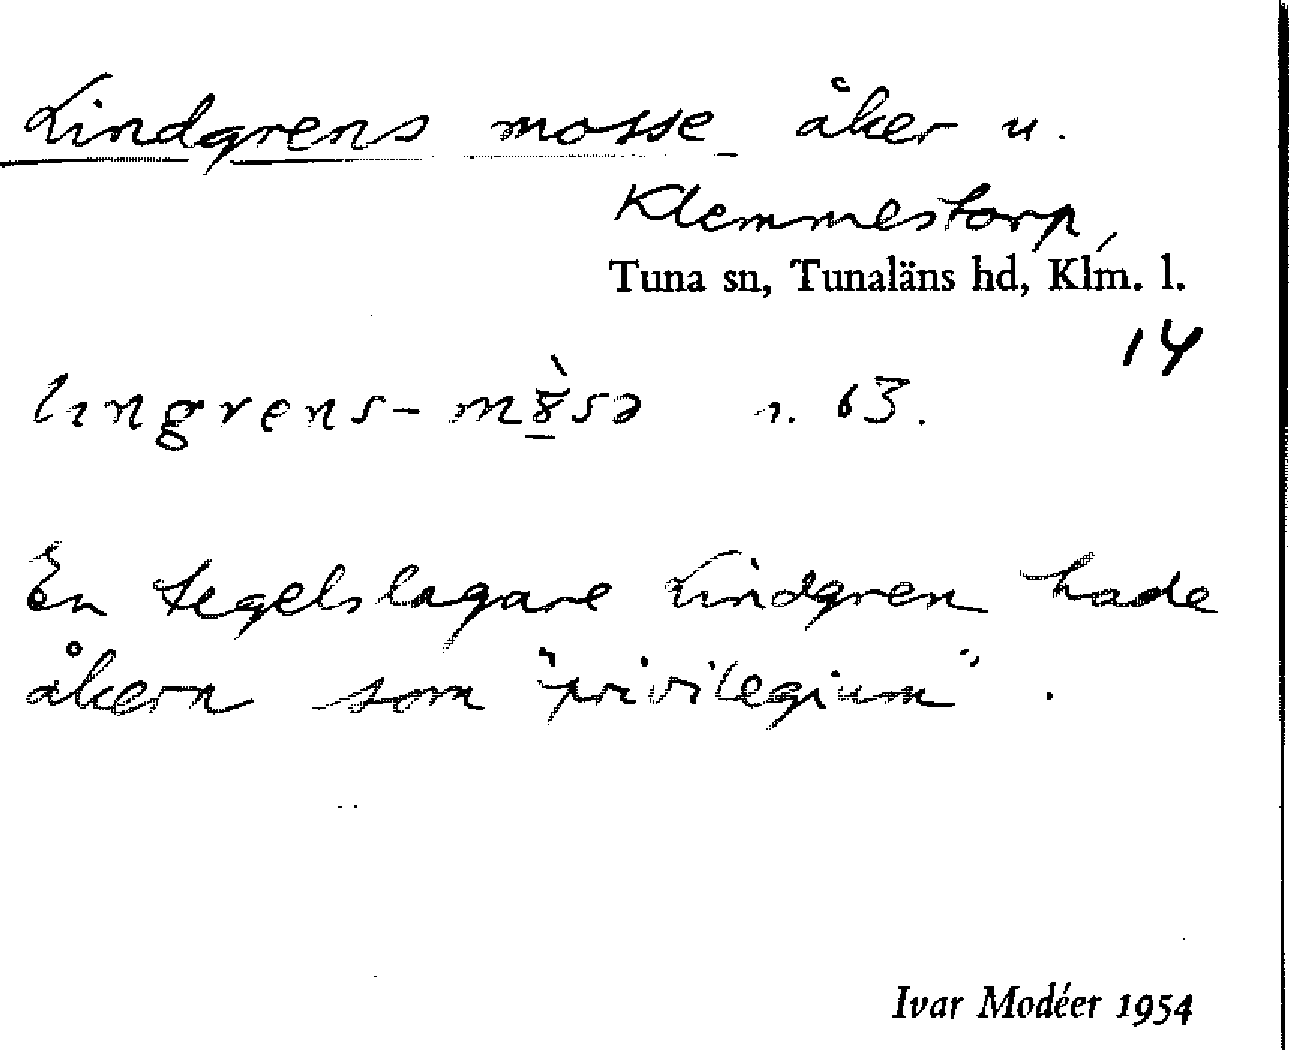 Lindgrens mosse åker u.
Klemmestorp,
Tuna sn, Tunaläns hd, Klm. l.
14
lıngrens- m8̀sə r. 63.
En tegelslagare Lindgren hade
åkern som "privilegium".
Ivar Modéer 1954